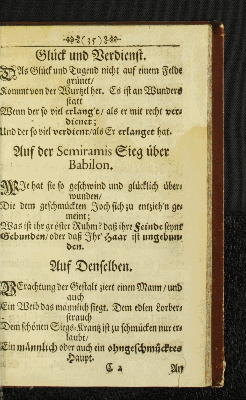 (35)
Glück und Verdienst.
DAs Glück und Tugend nicht auf einem Felde
grünet/
Kommt von der Wurtzel her. Es ist an Wunders
statt
Wenn der so viel erlang't/ als er mit recht ver-
dienet;
Und der so viel verdient/als Er erlanget hat.
Auf der Semiramis Sieg über
Babilon.
WIe hat sie so geschwind und glücklich über-
wunden/
Die dem geschmückten Joch sich zu entzieh'n ge-
meint;
Was ist ihr gröster Ruhm? daß ihre Feinde seynt
Gebunden/ oder daß Ihr Haar ist ungebun-
den.
Auf Denselben.
VErachtung der Gestalt ziert einen Mann/ und
auch
Ein Weib das mannlich siegt. Dem edlen Lorber-
strauch
Dem schönen Siegs-Krantz ist zu schmücken nur er-
laubt/
Ein männlich oder auch ein ohngeschmücktes
Haupt.
C 2 An